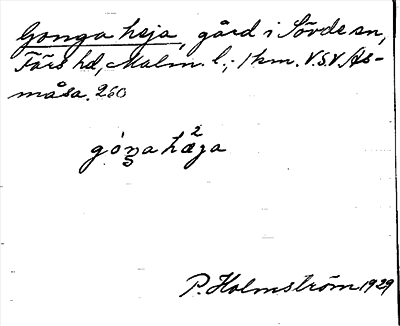 Gonga heja, gård i Sövde sn,
Färs hd, Malm. l., 1 km. V.S.V. Ås-
måsa. 260
góŋa hæ²ja
P. Holmström 1929